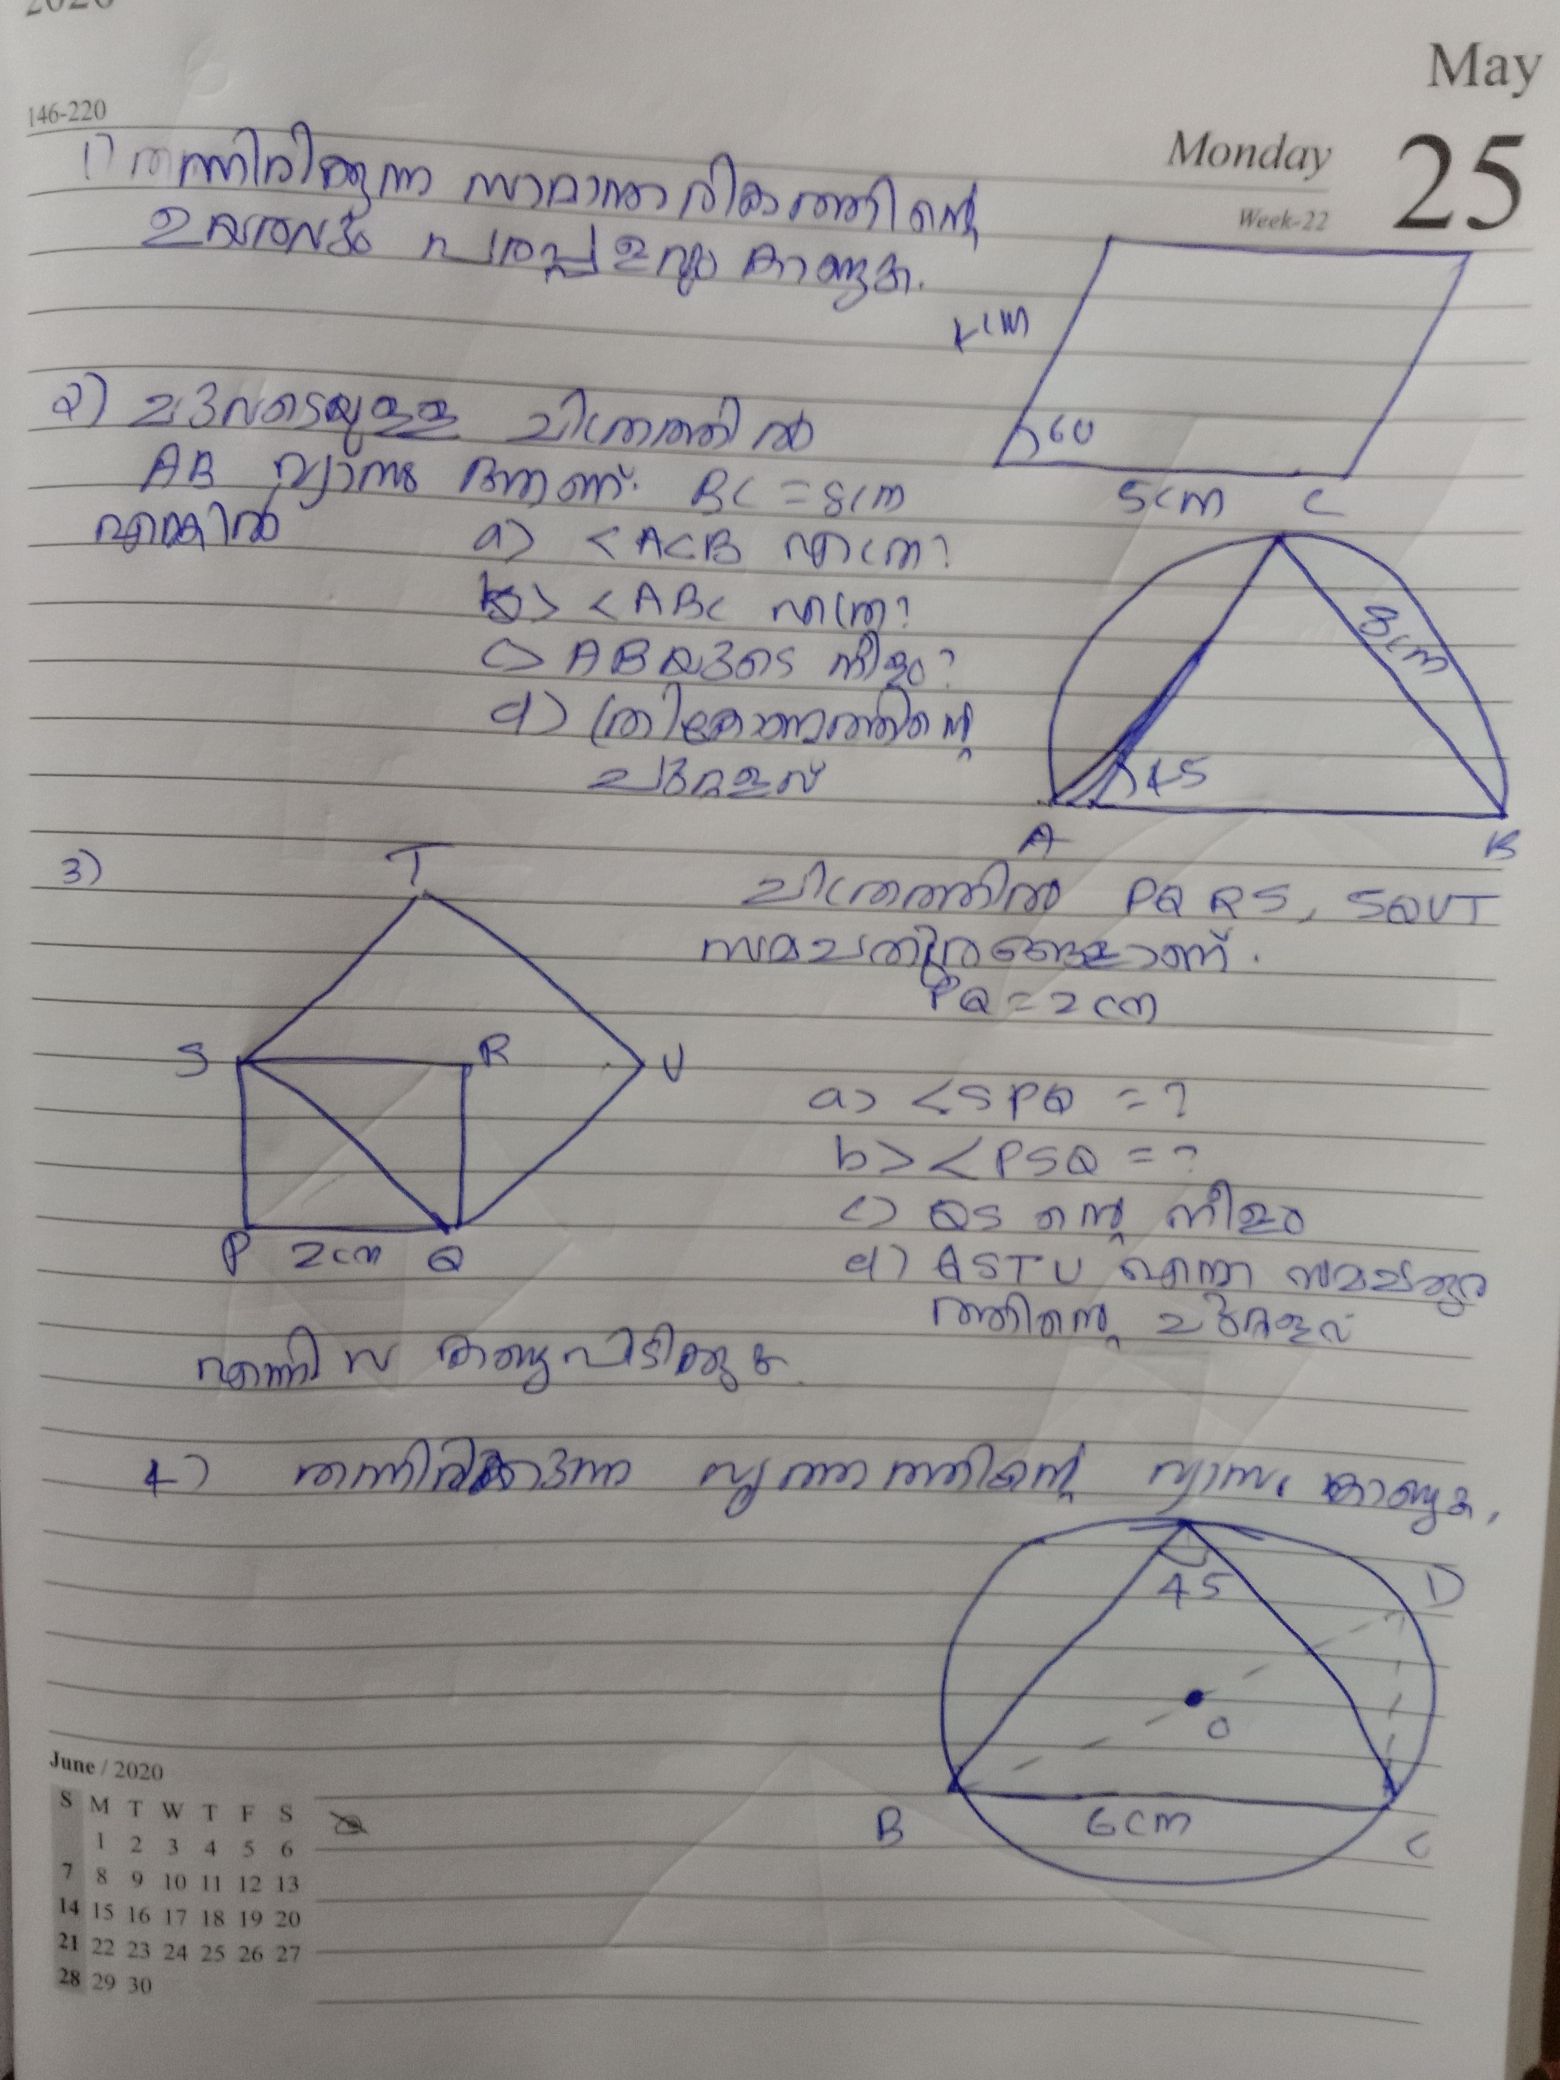 2020
May
Monday 25
Week-22
146-220
1) തന്നിരിക്കുന്ന സാമാന്തരികത്തിന്റെ
ഉയരവും പരപ്പളവും കാണുക.
4cm
60
5cm
2) ചുവടെയുള്ള ചിത്രത്തിൽ
AB വ്യാസം ആണ്. BC = 8cm
എങ്കിൽ a) <ACB എത്ര?
b) <ABC എത്ര?
c) AB യുടെ നീളം?
d) ത്രികോണത്തിന്റെ
ചുറ്റളവ്
C
8cm
45
A
B
3)
T
ചിത്രത്തിൽ PQRS, SQUT
സമചതുരങ്ങളാണ്.
PQ = 2cm
S R U
a) <SPQ = ?
b) <PSQ = ?
c) QS ന്റെ നീളം
P 2cm Q
d) QSTU എന്ന സമചതുര
ത്തിന്റെ ചുറ്റളവ്
എന്നിവ കണ്ടുപിടിക്കുക.
4) തന്നിരിക്കുന്ന വൃത്തത്തിന്റെ വ്യാസം കാണുക.
45
D
O
B 6cm C
June / 2020
S M T W T F S
1 2 3 4 5 6
7 8 9 10 11 12 13
14 15 16 17 18 19 20
21 22 23 24 25 26 27
28 29 30